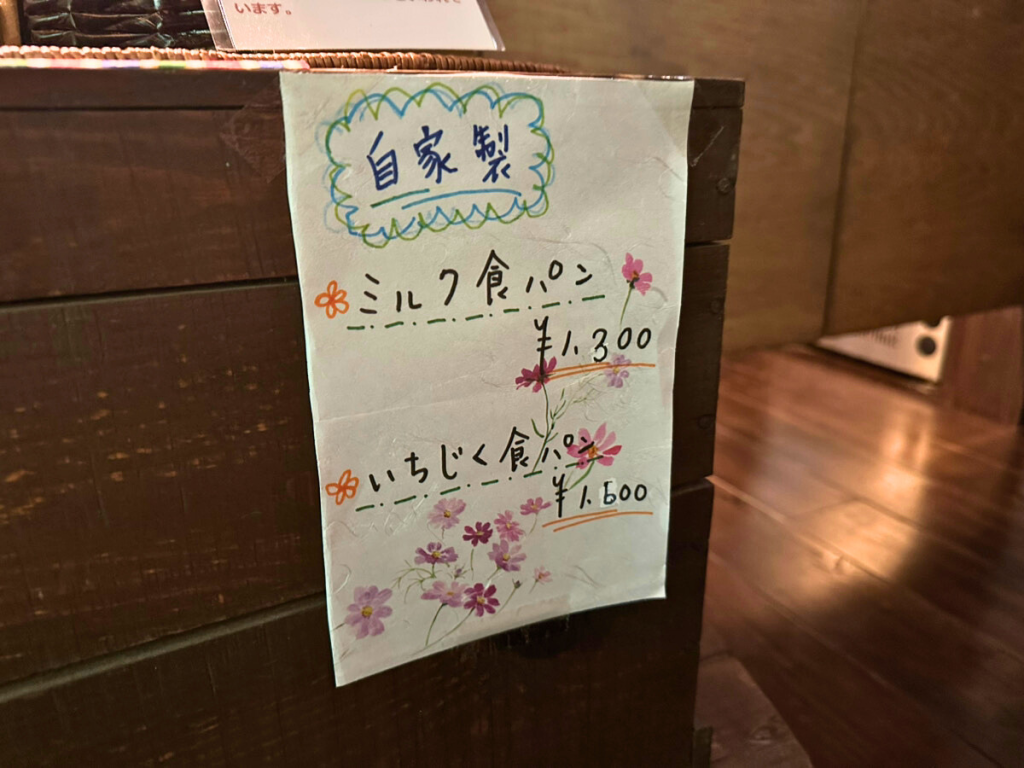 います。
自家製
ミルク食パン
¥1,300
いちじく食パン
¥1,500